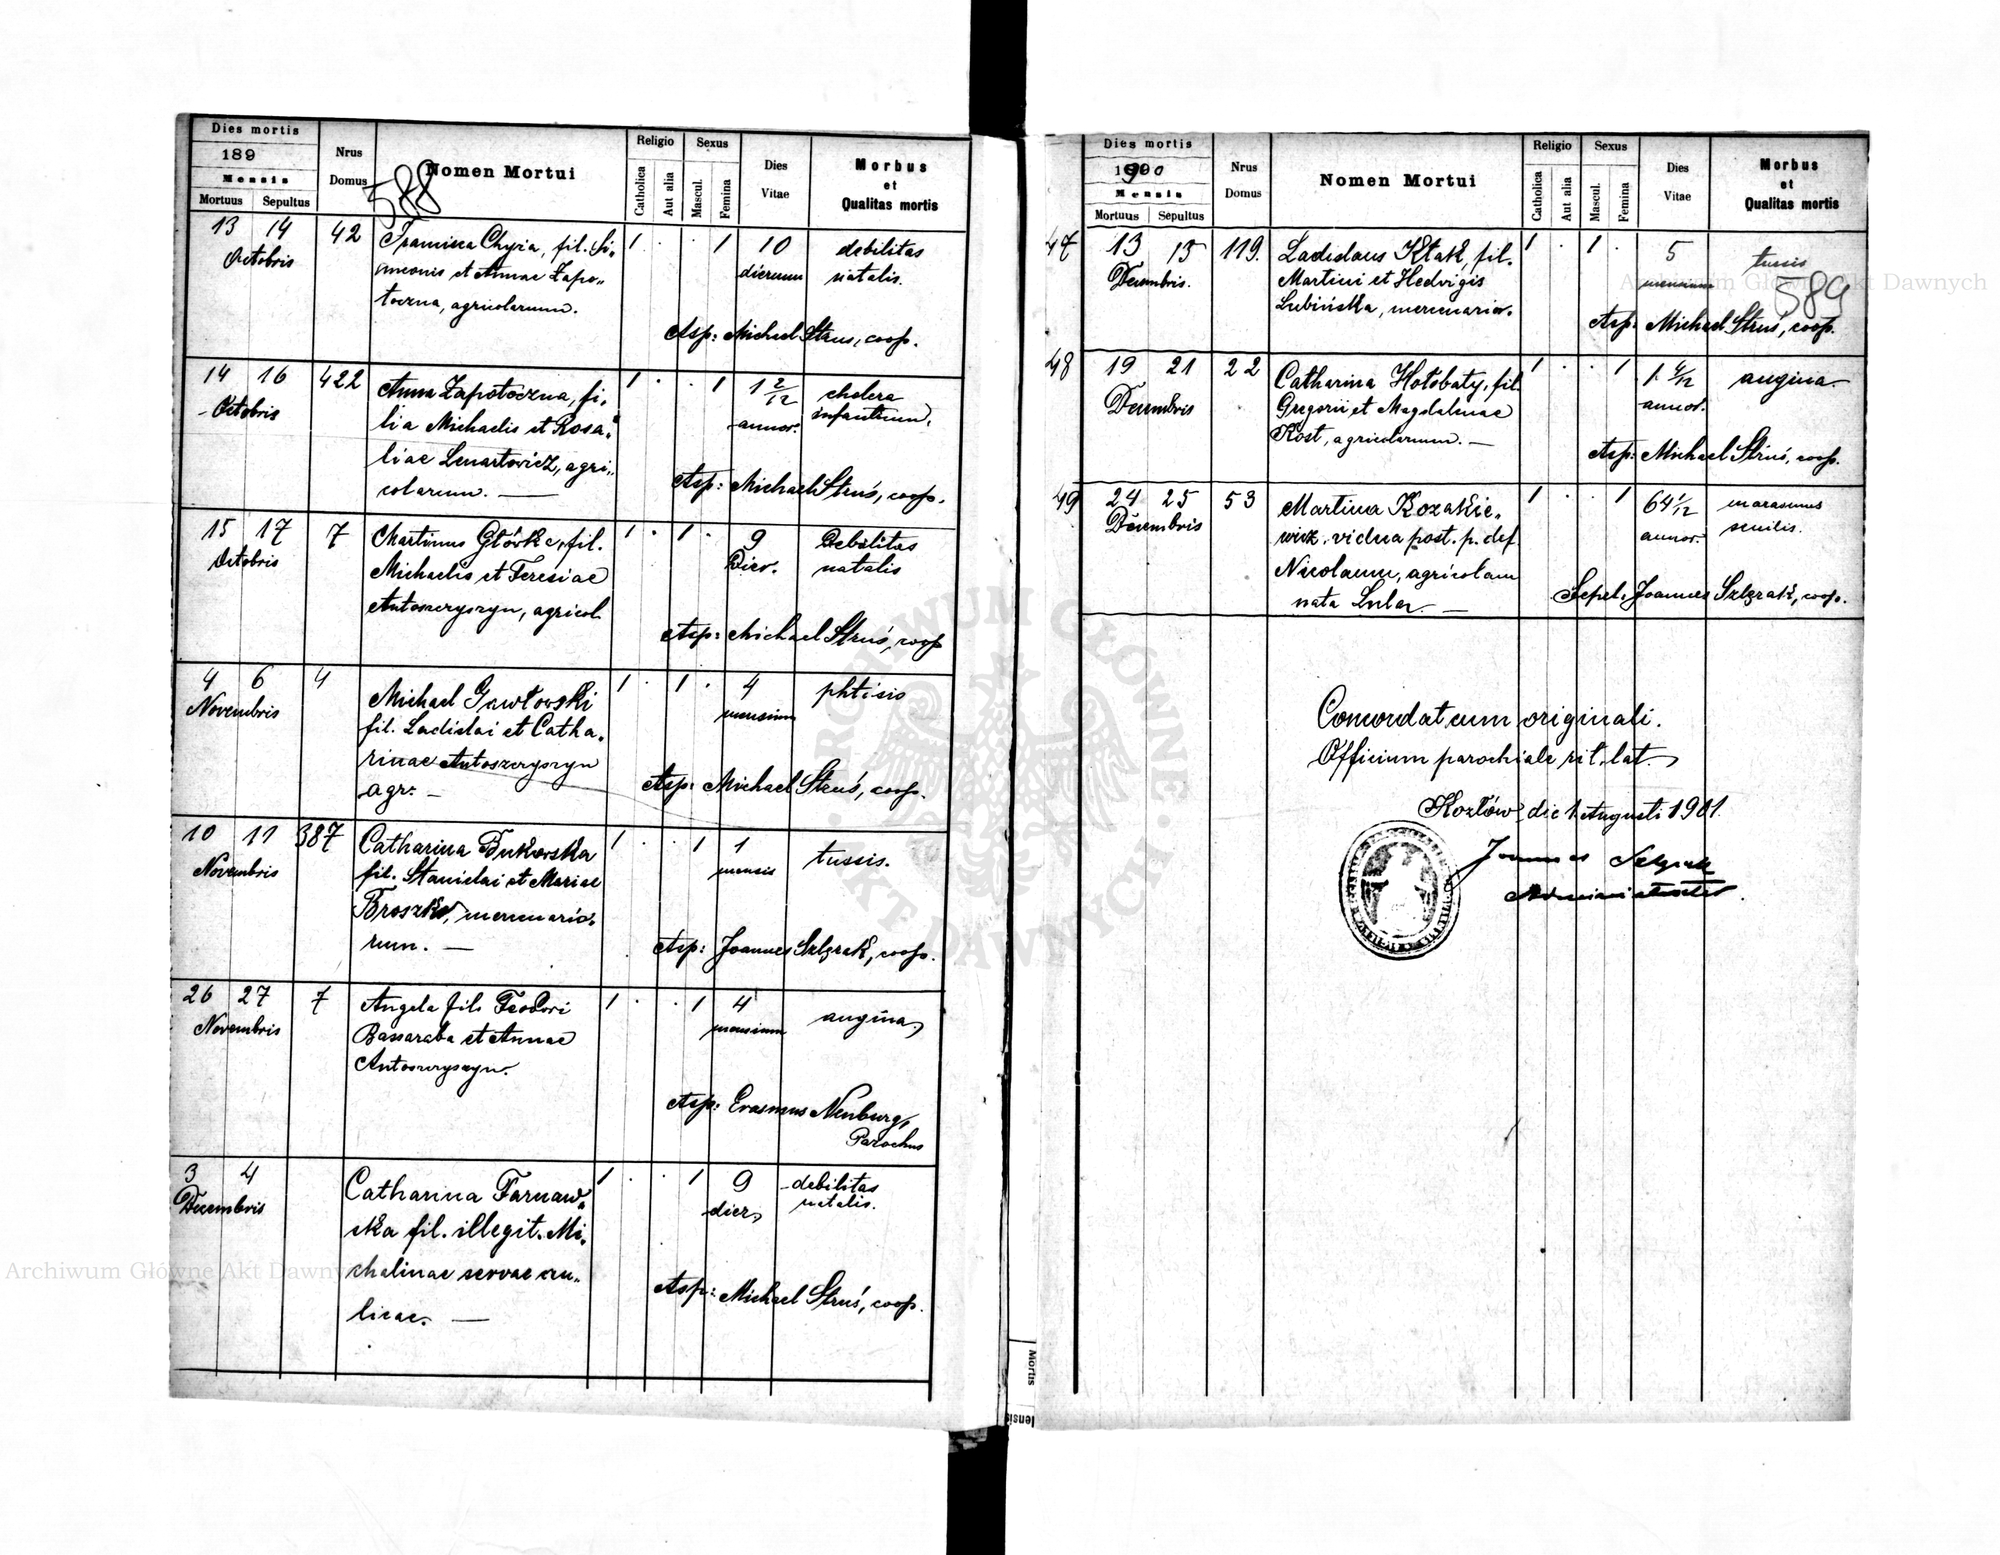 588
Dies mortis
189
Mensis
Mortuus Sepultus
Nrus
Domus
Nomen Mortui
Religio
Catholica
Aut alia
Sexus
Mascul.
Femina
Dies
Vitae
Morbus
et
Qualitas mortis
13 14 42 Francisca Chyra, fil. Si- 1 . . 1 10 debilitas
Octobris meonis et Annae Zapo„ dierum natalis.
toczna, agricolarum.
Asp: Michael Struś, coop.
14 16 422 Anna Zapotoczna, fi„ 1 . . 1 1 2/12 cholera
Octobris lia Michaelis et Rosa„ annor. infantium.
liae Lenartowicz, agri„
colarum. —
Asp: Michael Struś, coop.
15 17 7 Martinus Główka, fil. 1 . 1 . 9 Debilitas
Octobris Michaelis et Teresiae Dier. natalis
Antoszczyszyn, agricol.
Asp: Michael Struś, coop
4 6 4 Michael Gawłowski 1 . 1 . 4 phtisis
Novembris fil. Ladislai et Catha„ mensium
rinae Antoszczyszyn
agr. —
Asp: Michael Struś, coop.
10 11 387 Catharina Bukowska 1 . . 1 1 tussis.
Novembris fil. Stanislai et Mariae mensis
Broszko, mercenario„
rum. —
Asp: Joannes Szlęzak, coop.
26 27 7 Angela fil. Teodori 1 . . 1 4 angina
Novembris Bassaraba et Annae mensium
Antoszczyszyn.
Asp: Erasmus Neuburg,
Parochus
3 4 Catharina Tarnaw„ 1 . . 1 9 debilitas
Decembris ska fil. illegit. Mi„ dier. natalis.
chalinae servae au„
licae. —
Asp: Michael Struś, coop.
Dies mortis
1900
Mensis
Mortuus Sepultus
Nrus
Domus
Nomen Mortui
Religio
Catholica
Aut alia
Sexus
Mascul.
Femina
Dies
Vitae
Morbus
et
Qualitas mortis
589
47 13 15 119. Ladislaus Kłak, fil. 1 . 1 . 5 tussis
Decembris. Martini et Hedvigis mensium
Lubińska, mercenarior.
Asp: Michael Struś, coop.
48 19 21 22 Catharina Hołobaty, fil. 1 . . 1 1 4/12 angina
Decembris Gregorii et Magdalenae annor.
Kost, agricolarum. —
Asp: Michael Struś, coop.
49 24 25 53 Martina Kozakie„ 1 . . 1 64 1/12 marasmus
Decembris wicz, vidua post. p. def. annor. senilis.
Nicolaum, agricolam
nata Luba. —
Sepel. Joannes Szlęzak, coop.
Concordat cum originali.
Officium parochiale rit. lat.
Kozłów, die 1 Augusti 1901.
Joannes Szlęzak
Administrator.
Mortis
Mensis
Archiwum Główne Akt Dawnych
Archiwum Główne Akt Dawnych
ARCHIWUM GŁÓWNE AKT DAWNYCH